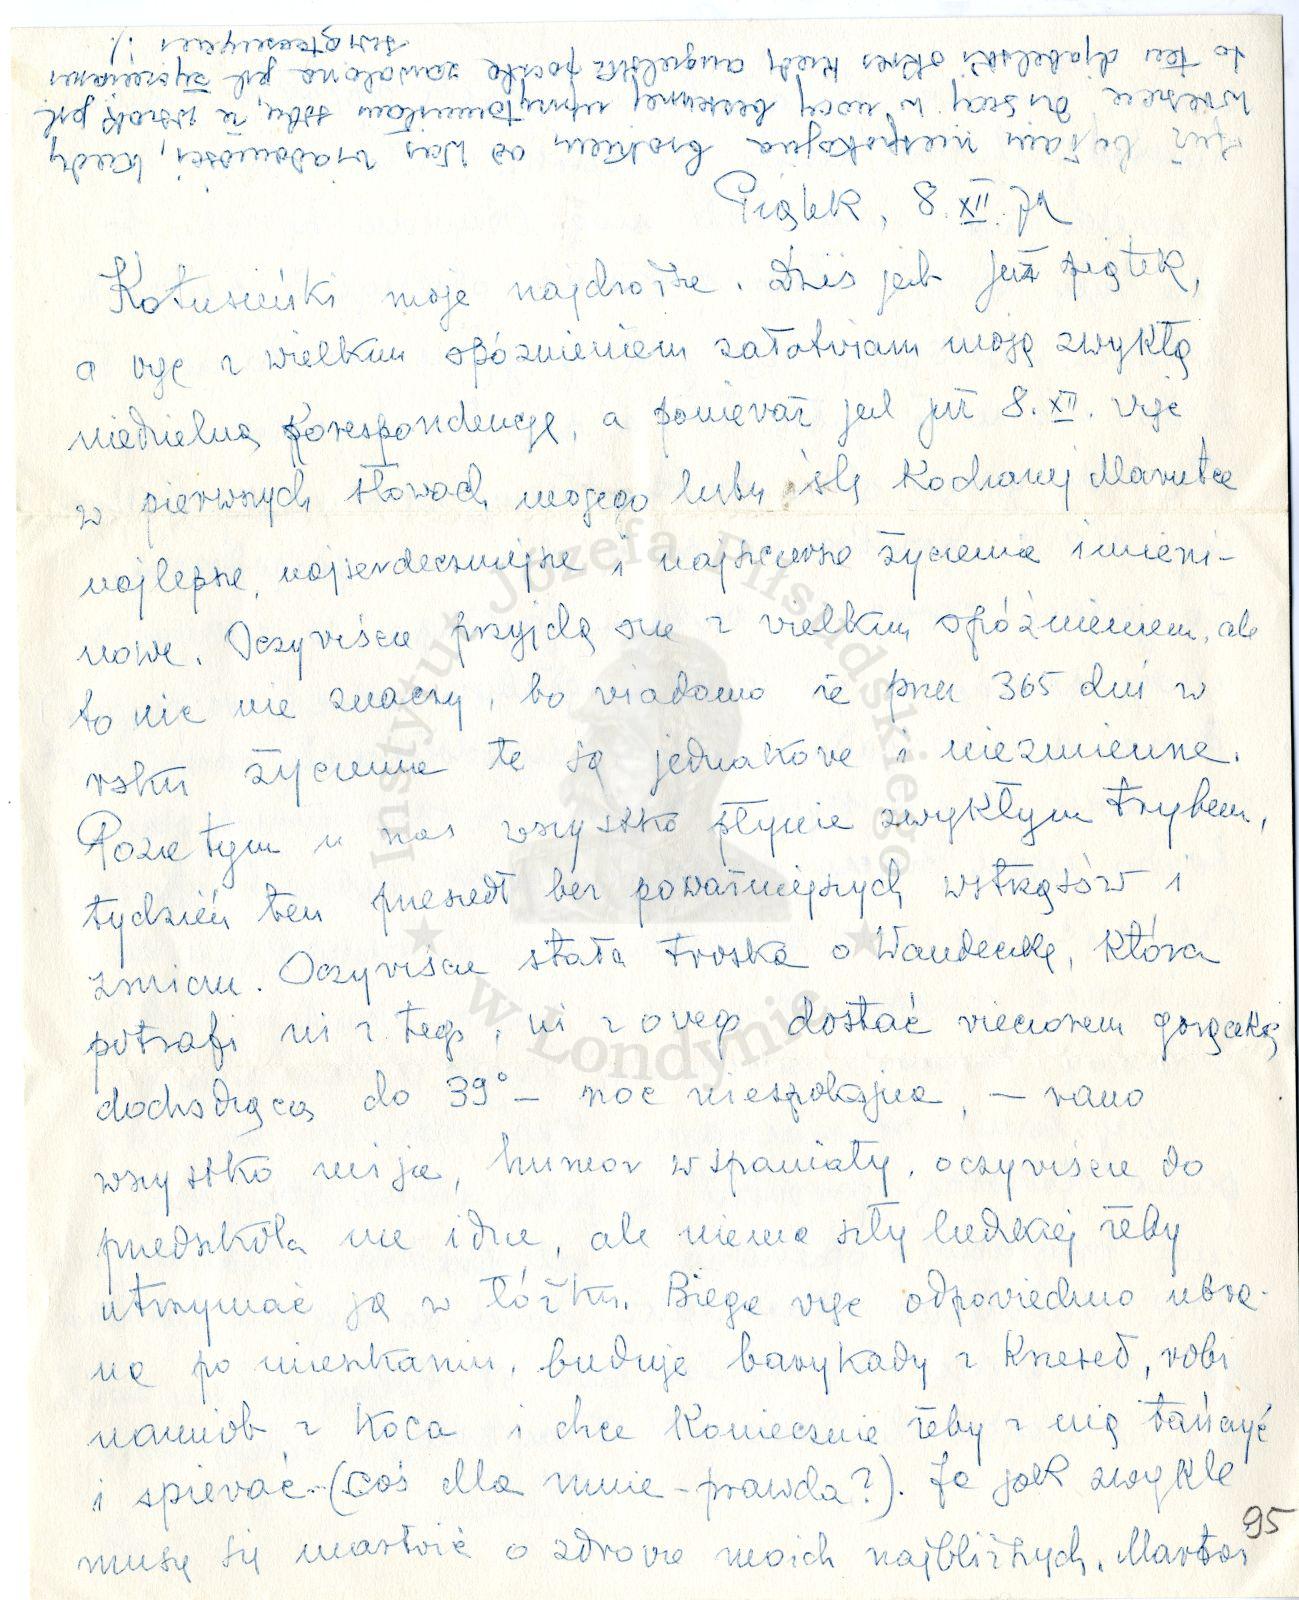 Już byłam niespokojna brakiem od Was wiadomości, kiedy
wreszcie dzisiaj w nocy bezsennej uprzytomniłam sobie, że wszak jest
to ten djabelski okres kiedy angielska poczta zawalona jest życzeniami
świątecznymi!
Piątek, 8.XII.72
Kotusieńki moje najdroższe. Dziś jest już piątek,
a więc z wielkim opóźnieniem załatwiam moją zwykłą
niedzielną korespondencję, a ponieważ jest już 8.XII. więc
w pierwszych słowach mojego listu ślę Kochanej Marutce
najlepsze, najserdeczniejsze i najszczersze życzenia imieni-
nowe. Oczywiście przyjdą one z wielkim opóźnieniem, ale
to nic nie znaczy, bo wiadomo że przez 365 dni w
roku życzenia te są jednakowe i niezmienne.
Poza tym u nas wszystko płynie zwykłym trybem,
tydzień ten przeszedł bez poważniejszych wstrząsów i
zmian. Oczywiście stała troska o Wandeczkę, która
potrafi ni z tego, ni z owego dostać wieczorem gorączkę
dochodzącą do 39° – noc niespokojna, – rano
wszystko mija, humor wspaniały, oczywiście do
przedszkola nie idzie, ale niema siły ludzkiej żeby
utrzymać ją w łóżku. Biega więc odpowiednio ubra-
na po mieszkaniu, buduje barykady z krzeseł, robi
namiot z koca i chce koniecznie żeby z nią tańczyć
i śpiewać – (coś dla mnie – prawda?). Ja jak zwykle
muszę się martwić o zdrowie moich najbliższych.
95
Instytut Józefa Piłsudskiego
w Londynie